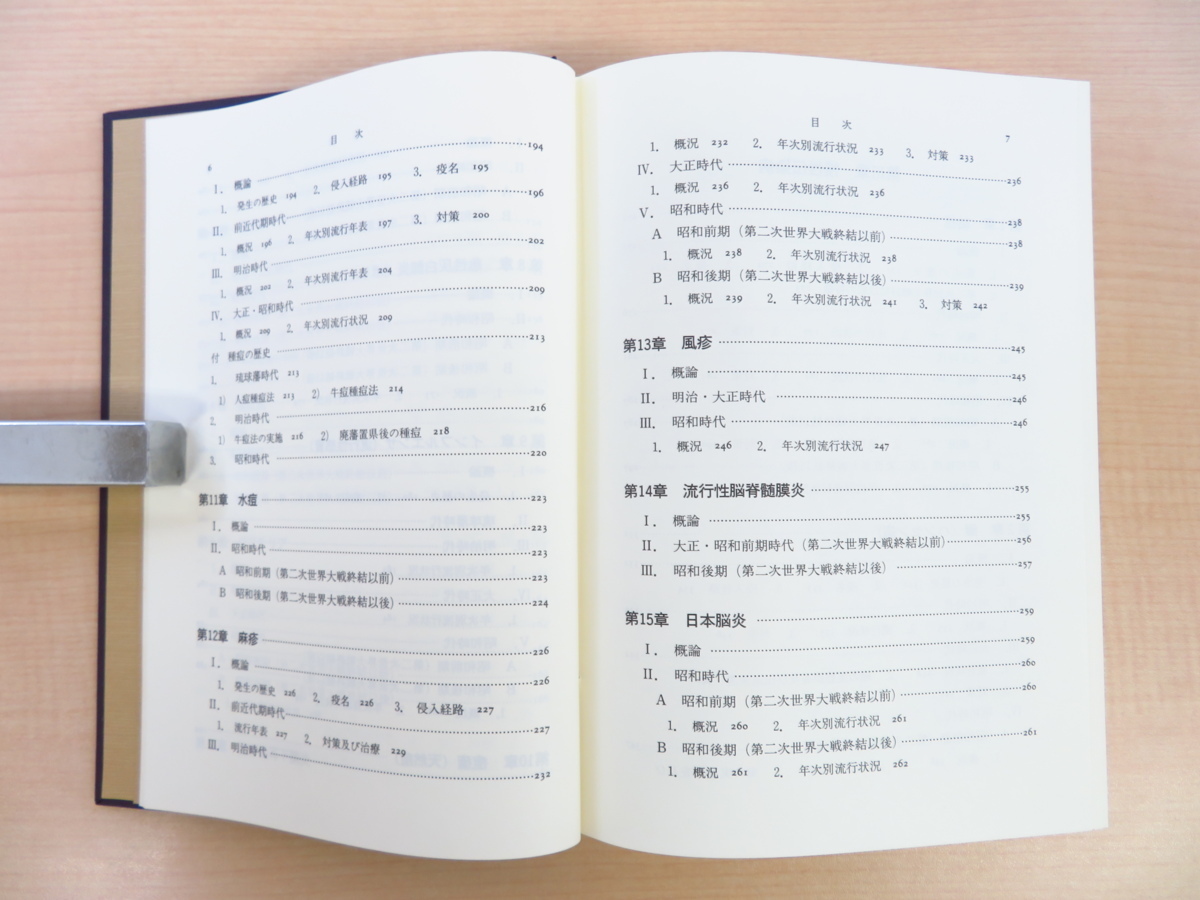 目 次
6
I. 概論 194
1. 発生の歴史 194 2. 侵入経路 195 3. 疫名 195
II. 前近代期時代 196
1. 概況 196 2. 年次別流行年表 197 3. 対策 200
III. 明治時代 202
1. 概況 202 2. 年次別流行年表 204
IV. 大正・昭和時代 209
1. 概況 209 2. 年次別流行状況 209
付 種痘の歴史 213
1. 琉球藩時代 213
1) 人痘種痘法 213 2) 牛痘種痘法 214
2. 明治時代 216
1) 牛痘法の実施 216 2) 廃藩置県後の種痘 218
3. 昭和時代 220
第11章 水痘 223
I. 概論 223
II. 昭和時代 223
A 昭和前期（第二次世界大戦終結以前） 223
B 昭和後期（第二次世界大戦終結以後） 224
第12章 麻疹 226
I. 概論 226
1. 発生の歴史 226 2. 疫名 226 3. 侵入経路 227
II. 前近代期時代 227
1. 流行年表 227 2. 対策及び治療 229
III. 明治時代 232
目 次
7
1. 概況 232 2. 年次別流行状況 233 3. 対策 233
IV. 大正時代 236
1. 概況 236 2. 年次別流行状況 236
V. 昭和時代 238
A 昭和前期（第二次世界大戦終結以前） 238
1. 概況 238 2. 年次別流行状況 238
B 昭和後期（第二次世界大戦終結以後） 239
1. 概況 239 2. 年次別流行状況 241 3. 対策 242
第13章 風疹 245
I. 概論 245
II. 明治・大正時代 246
III. 昭和時代 246
1. 概況 246 2. 年次別流行状況 247
第14章 流行性脳脊髄膜炎 255
I. 概論 255
II. 大正・昭和前期時代（第二次世界大戦終結以前） 256
III. 昭和後期（第二次世界大戦終結以後） 257
第15章 日本脳炎 259
I. 概論 259
II. 昭和時代 260
A 昭和前期（第二次世界大戦終結以前） 260
1. 概況 260 2. 年次別流行状況 261
B 昭和後期（第二次世界大戦終結以後） 261
1. 概況 261 2. 年次別流行状況 262